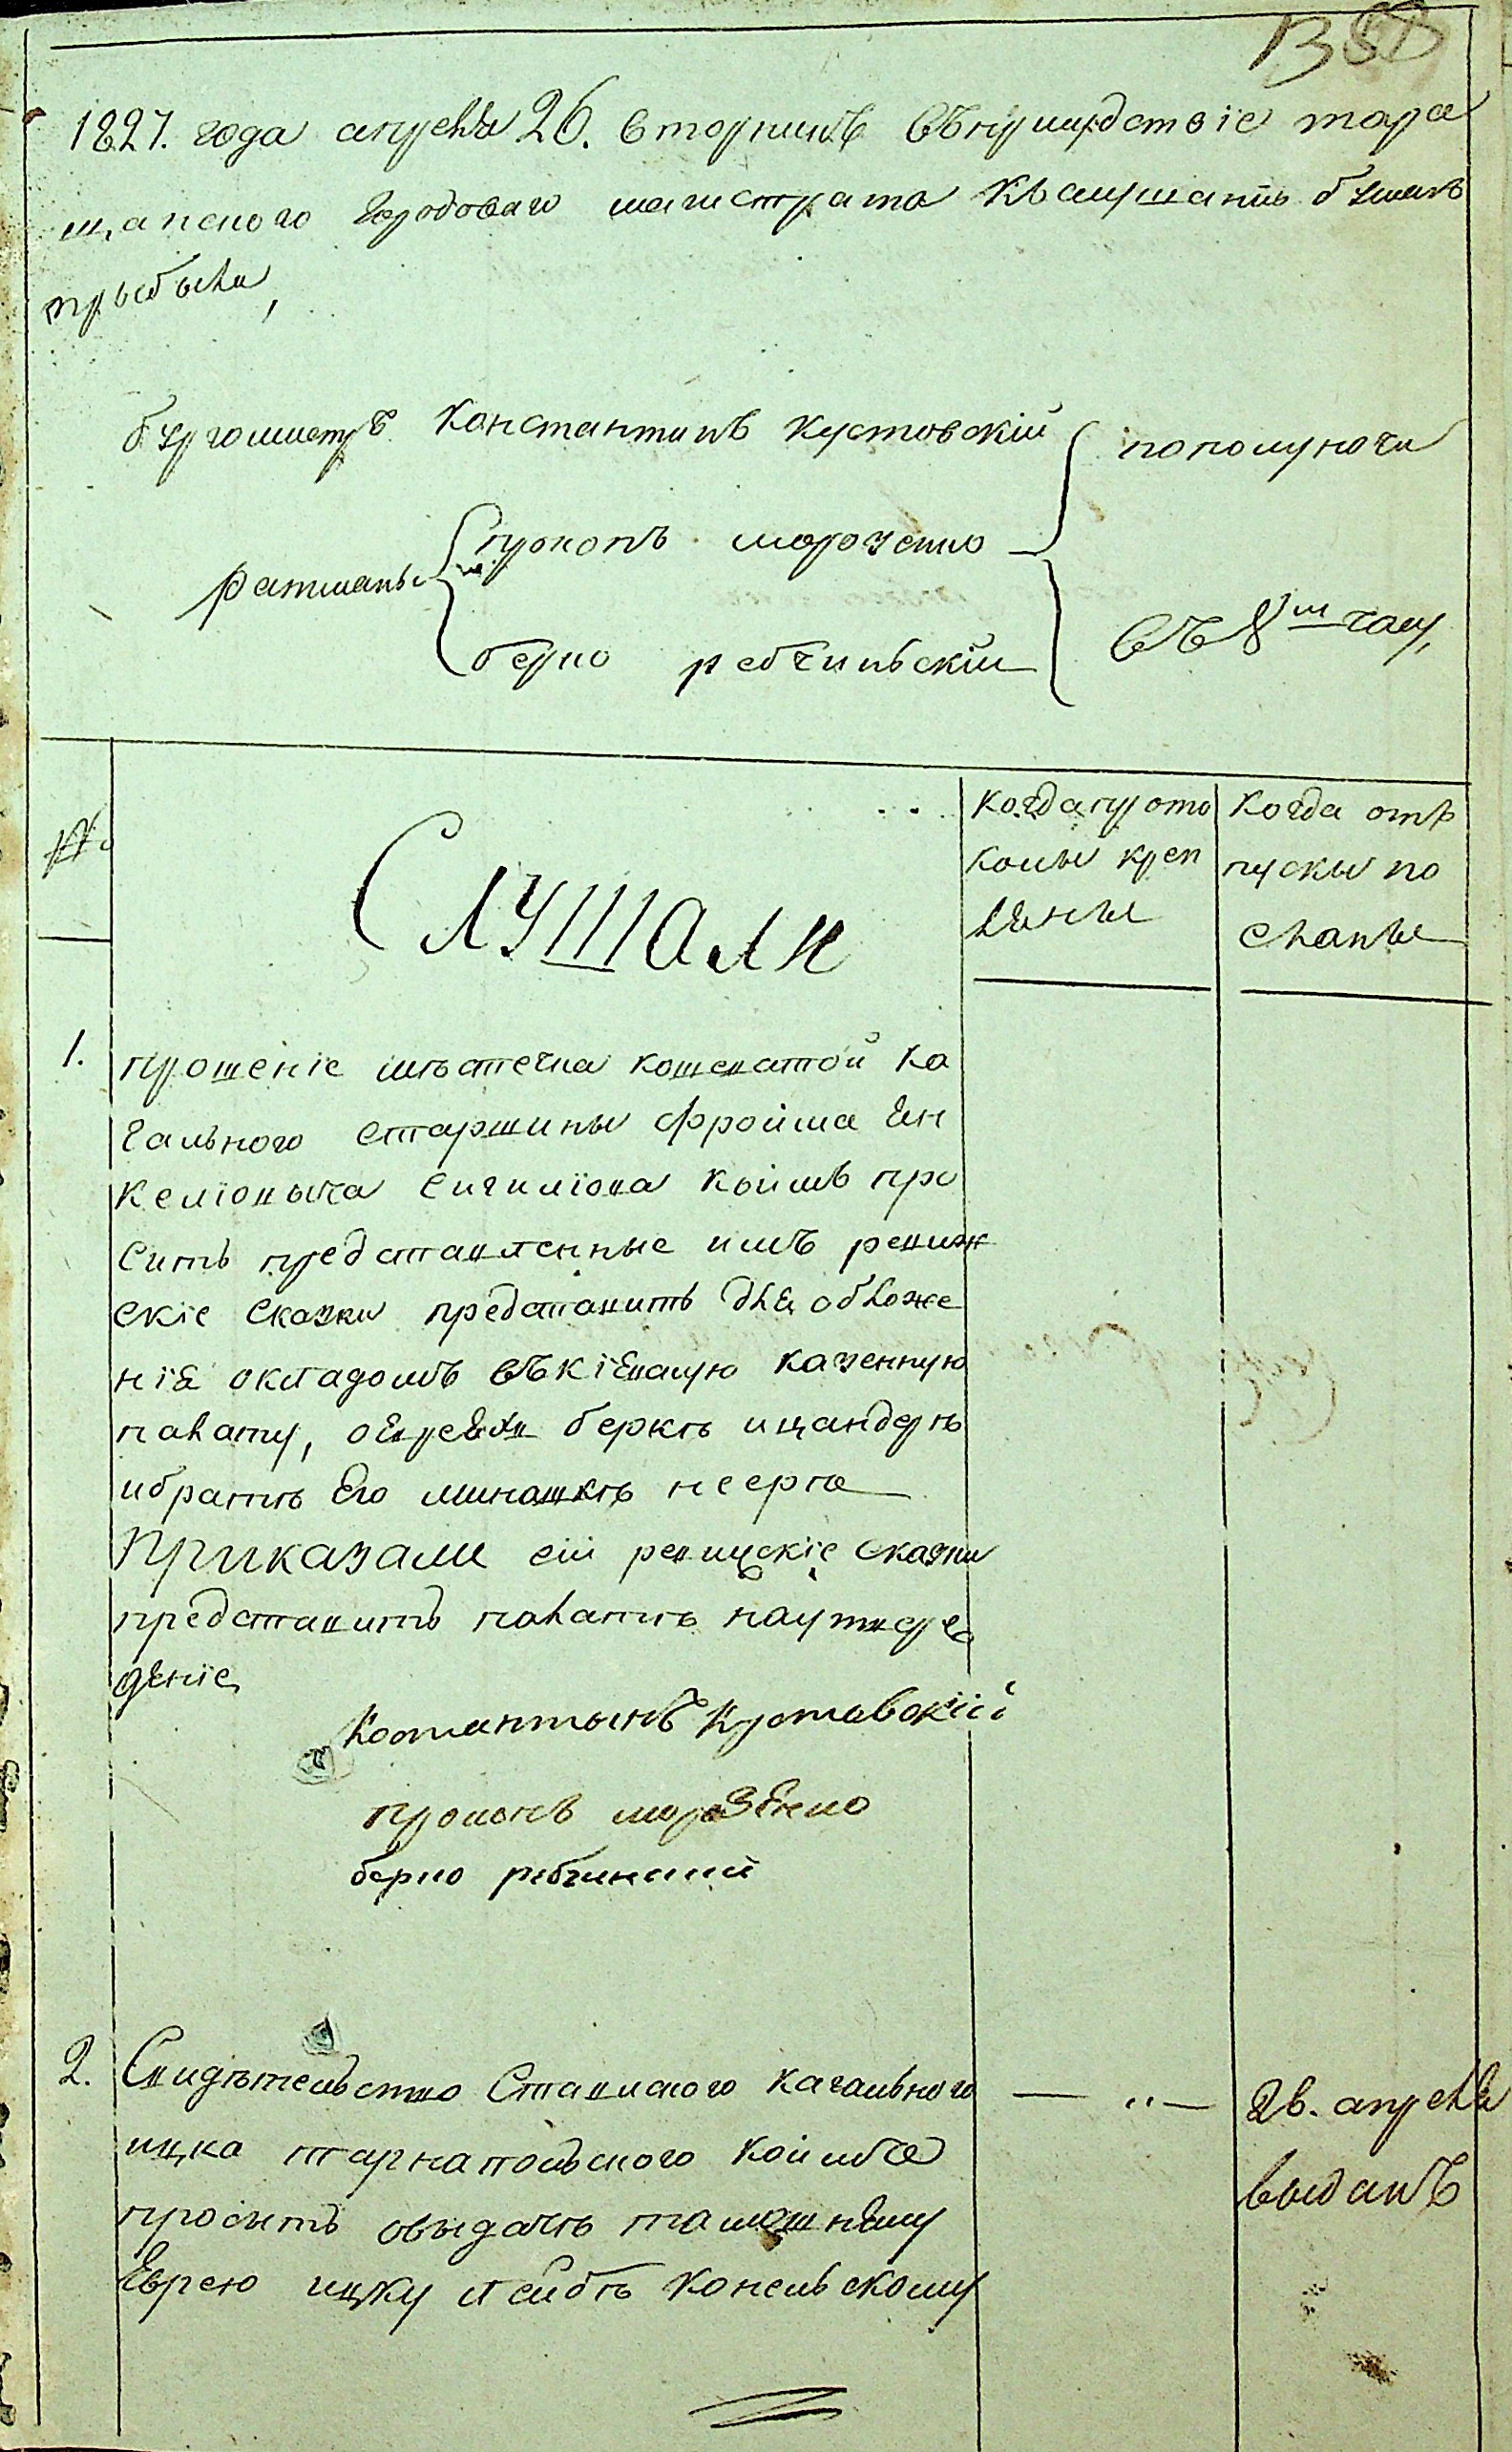 1827. года апреля 26. вторникъ въприсудствіе тара
щанского городоваго магистрата къслушанію бумагъ
прыбыли,
бургомистръ Константинъ Кустовскій
пополуночи
ратманы
прокопъ морозенко
берко ребчиньскій
въ 8м часу,
№
Слушали
когда прото
колы креп
лены
Когда отъ
пуски по
сланы
1.
прошеніе мѣстечка кошеватой ка
гального старшины Фройма Ян
келіовича Сигиліова коимъ про
ситъ представленные имъ ревиж
скіе сказки представить для обложе
нія окладомъ въкіевскую казенную
палату, оевреях беркѣ ицандерѣ
ибратѣ Его мнношкѣ неерпа
Приказали сіи ревизскіе сказки
представить палатѣ наутверж
деніе
Костантынъ Кустовскій
прокопъ морозенко
берко ребчинский
2.
Свидѣтельство Ставиского кагального
ицка тарнапольского коимъ
проситъ овыдачѣ тамошнему
Еврею ицку лейбѣ конельскому
— " —
26. апреля
выданъ